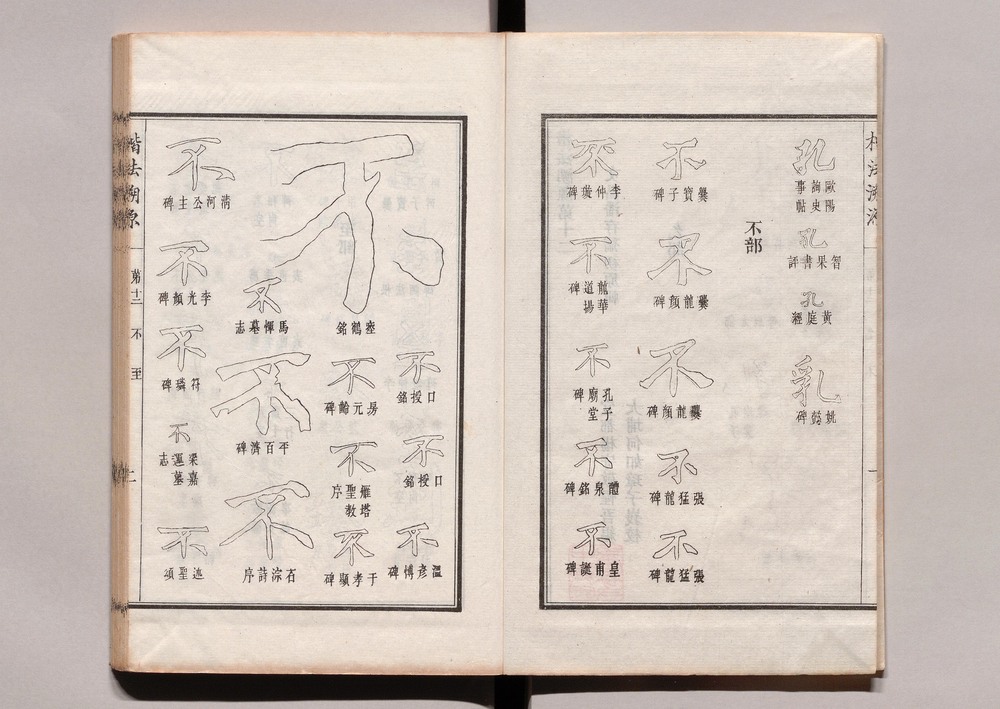 楷法溯源
孔
歐陽詢史事帖
孔
智果書評
孔
黃庭經
乳
姚懿碑
不部
不
爨寶子碑
不
爨龍顏碑
不
爨龍顏碑
不
張猛龍碑
不
張猛龍碑
不
李仲璇碑
不
龍華道揚碑
不
孔子廟堂碑
不
醴泉銘碑
不
皇甫誕碑
不
瘞鶴銘
不
口授銘
不
口授銘
不
溫彥博碑
不
房元齡碑
不
雁塔聖教序
不
于孝顯碑
不
馬懌墓志
不
平百濟碑
不
石淙詩序
不
清河公主碑
不
李光顏碑
不
符璘碑
不
梁嘉運墓志
不
述聖頌
楷法溯源
第十二
不
至